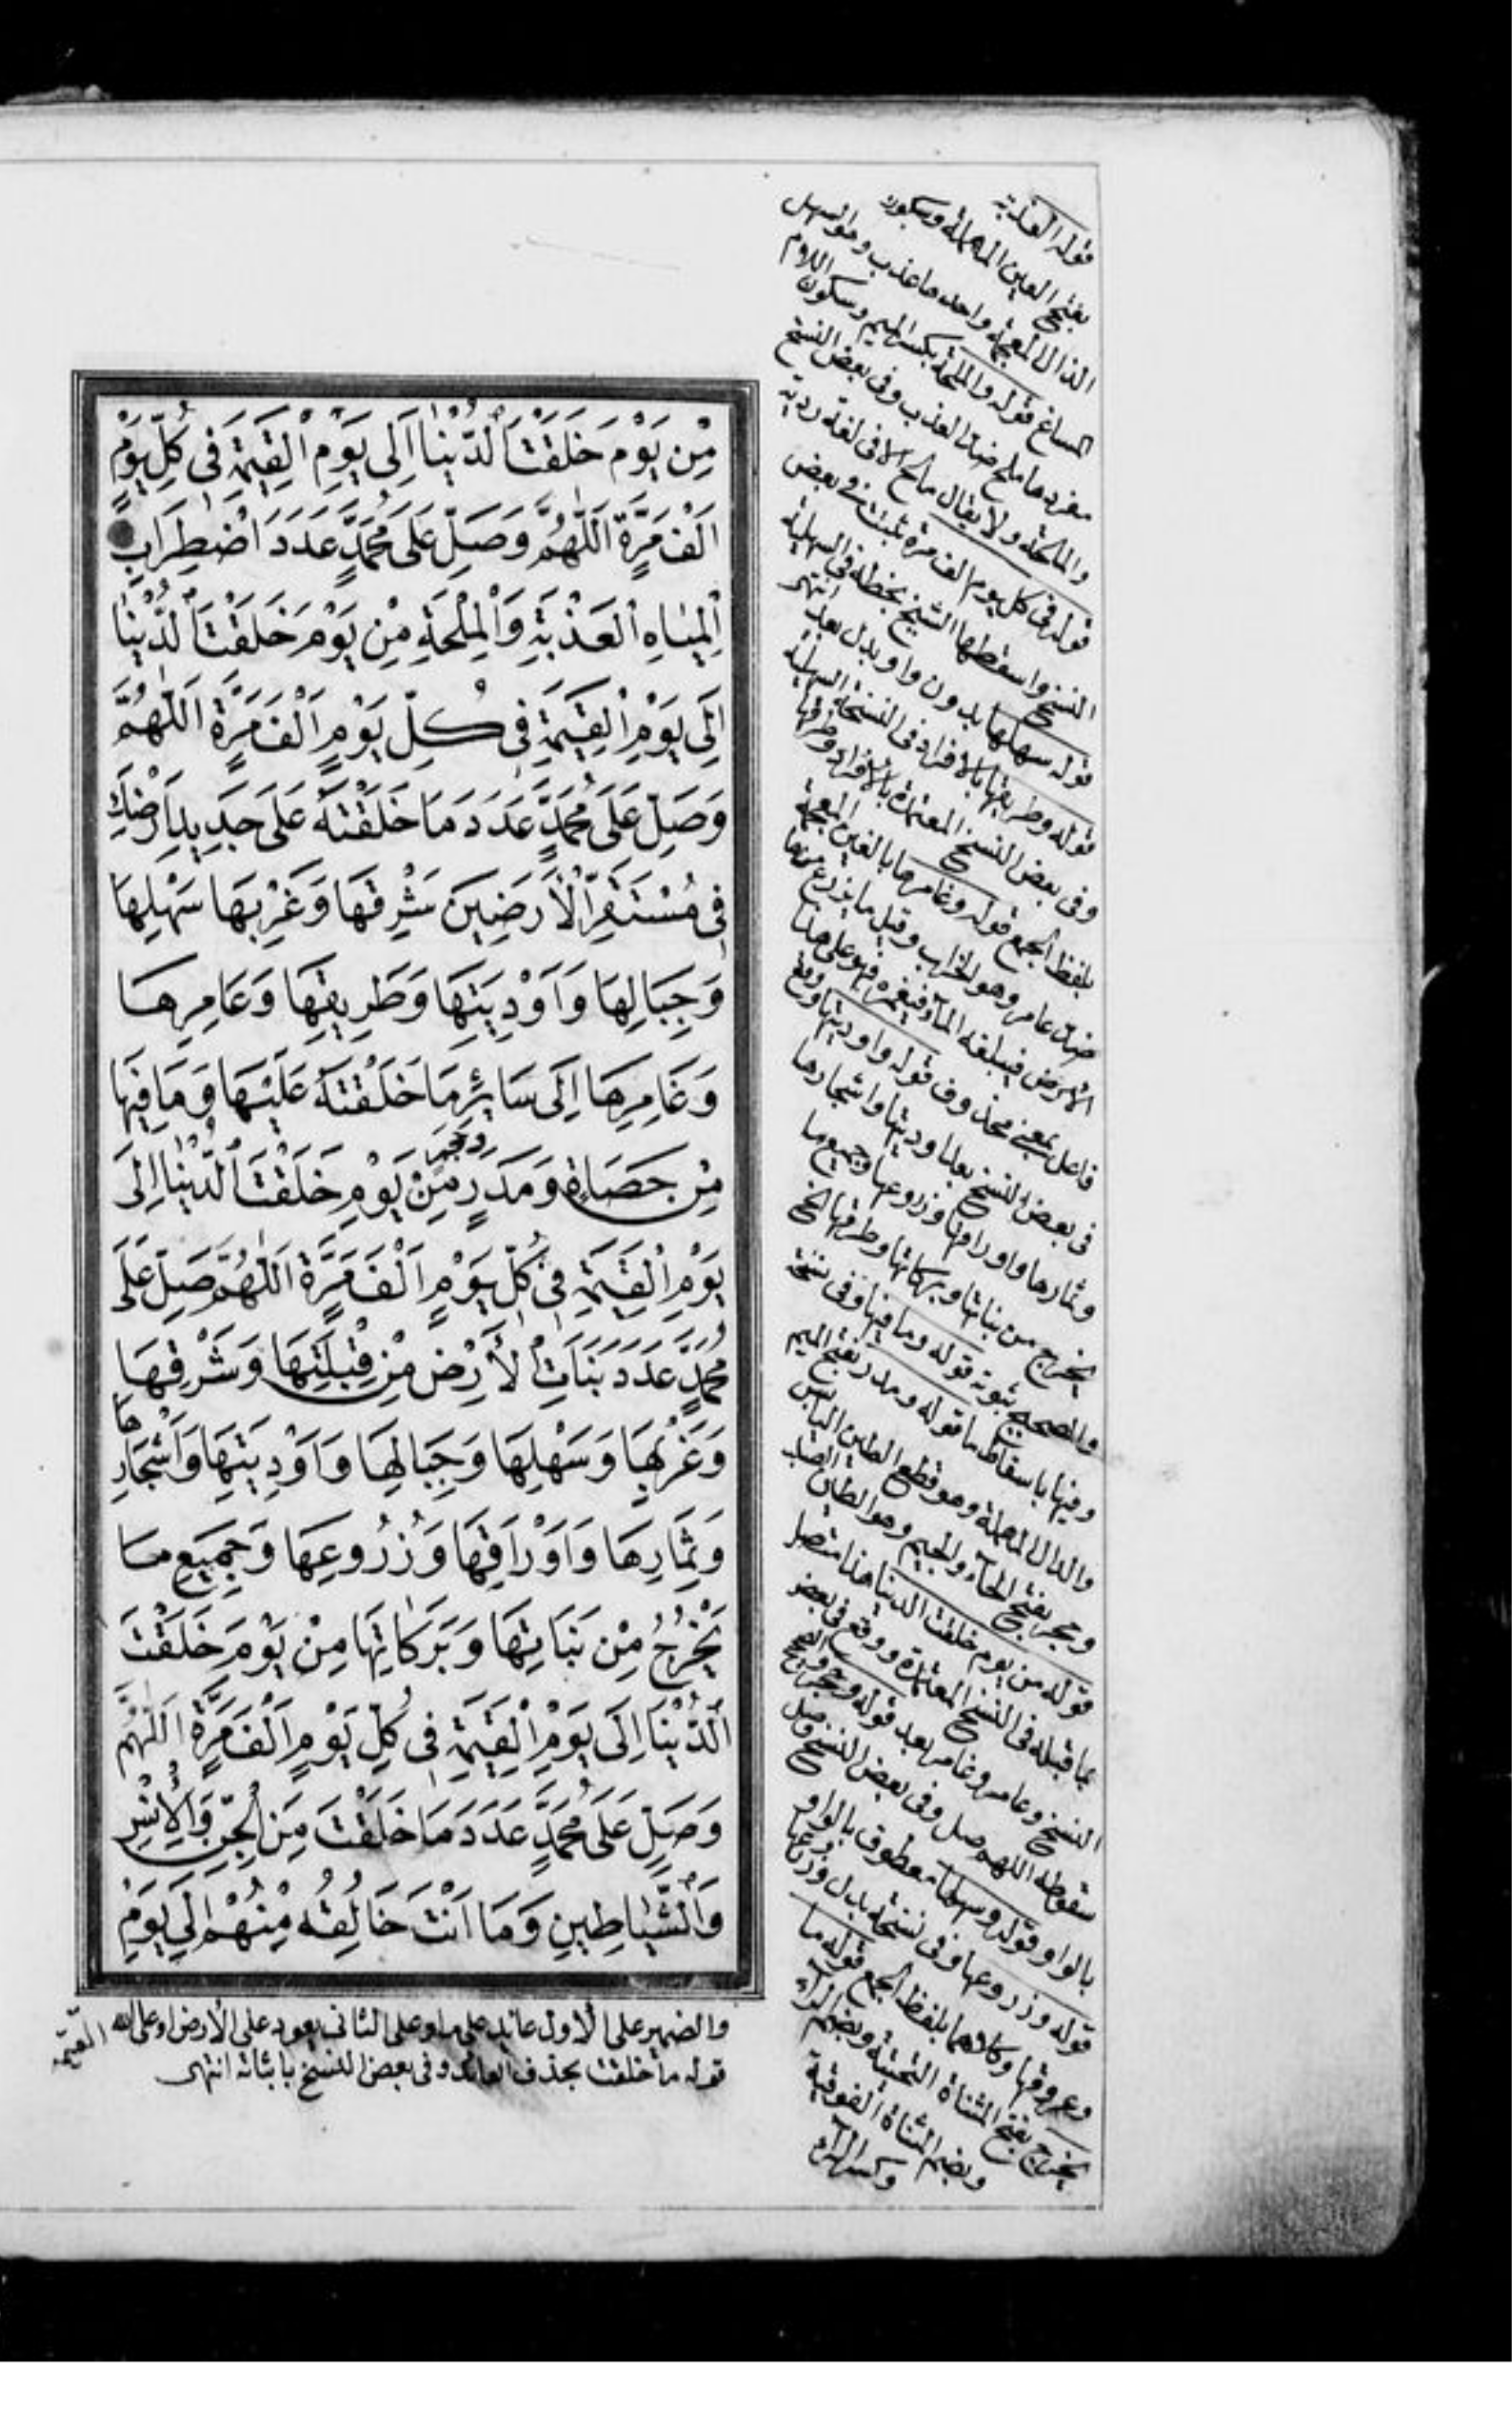 مِنْ يَوْمَ خَلَقْتَ الدُّنْيَا اِلَى يَوْمِ الْقِيَمَةِ فِى كُلِّ يَوْمٍ
اَلْفَ مَرَّةٍ اَللّٰهُمَّ وَصَلِّ عَلَى مُحَمَّدٍ عَدَدَ اضْطِرَابِ
الْمِيَاهِ الْعَذْبَةِ وَالْمِلْحَةِ مِنْ يَوْمَ خَلَقْتَ الدُّنْيَا
اِلَى يَوْمِ الْقِيَمَةِ فِى كُلِّ يَوْمٍ اَلْفَ مَرَّةٍ اَللّٰهُمَّ
وَصَلِّ عَلَى مُحَمَّدٍ عَدَدَ مَا خَلَقْتَهُ عَلَى جَدِيدِ اَرْضِكَ
فِى مُسْتَقَرِّ الْأَرَضِينَ شَرْقِهَا وَغَرْبِهَا سَهْلِهَا
وَجِبَالِهَا وَاَوْدِيَتِهَا وَطَرِيقِهَا وَعَامِرِهَا
وَغَامِرِهَا اِلَى سَائِرِ مَا خَلَقْتَهُ عَلَيْهَا وَمَا فِيهَا
مِنْ حَصَاةٍ وَمَدَرٍ وَحَجَرٍ مِنْ يَوْمِ خَلَقْتَ الدُّنْيَا اِلَى
يَوْمِ الْقِيَمَةِ فِى كُلِّ يَوْمٍ اَلْفَ مَرَّةٍ اَللّٰهُمَّ صَلِّ عَلَى
مُحَمَّدٍ عَدَدَ نَبَاتِ الْأَرْضِ مِنْ قِبْلَتِهَا وَشَرْقِهَا
وَغَرْبِهَا وَسَهْلِهَا وَجِبَالِهَا وَاَوْدِيَتِهَا وَاَشْجَارِهَا
وَثِمَارِهَا وَاَوْرَاقِهَا وَزُرُوعِهَا وَجَمِيعِ مَا
يَخْرُجُ مِنْ نَبَاتِهَا وَبَرَكَاتِهَا مِنْ يَوْمَ خَلَقْتَ
الدُّنْيَا اِلَى يَوْمِ الْقِيَمَةِ فِى كُلِّ يَوْمٍ اَلْفَ مَرَّةٍ اَللّٰهُمَّ
وَصَلِّ عَلَى مُحَمَّدٍ عَدَدَ مَا خَلَقْتَ مِنَ الْجِنِّ وَالْاِنْسِ
وَالشَّيَاطِينِ وَمَا اَنْتَ خَالِقُهُ مِنْهُمْ اِلَى يَوْمِ
القيمة
والضمير على الاول عائد على ما وعلى الثانى يعود على الارض
قوله ما خلقت بحذف العائد وفى بعض النسخ باثباته انتهى
قوله العذبة
بفتح العين المهملة وسكون
الذال المعجمة واحده ما عذب وهو السهل
المساغ قوله والملحة بكسر الميم وسكون اللام
مفردها ملح ضد العذب وفى بعض النسخ
والمالحة ولا يقال مالح الا فى لغة ردية
قوله فى كل يوم الف مرة ثبتت فى بعض
النسخ واسقطها الشيخ بخطه فى السهلية انتهى
قوله سهلها بدون واو بدل بعد
قوله وطريقها بالافراد فى النسخة السهلية
وفى بعض النسخ المعتمدة بالافراد وطرقها
بلفظ الجمع قوله وغامرها بالغين المعجمة
ضد عامر وهو الخراب وقيل ما يزرع من
الارض فيبلغه الماء فيغمره فهو على هذا
فاعل بمعنى قوله واوديتها ووقع
فى بعض النسخ بعد اوديتها واشجارها
وثمارها واوراقها وزروعها وجميع ما
يخرج من نباتها وبركاتها وطرقها الخ
والصحيح ثبوته قوله وما فيها وفى نسخة
وفيها باسقاط ما قوله ومدر بفتح الميم
والدال المهملة وهو قطع الطين اليابس
وحجر بفتح الحاء والجيم وهو الطين الصلب
قوله من يوم خلقت الدنيا هذا متصل
بما قبله فى النسخ المعتمدة ووقع فى بعض
النسخ وعامر وغامر بعد قوله وحجر
سقوط اللهم صل وفى بعض النسخ وصل
بالواو قوله وسهلها معطوف بالواو
قوله وزروعها وفى نسخة بدل
وعروقها وكلاهما بلفظ الجمع قوله ما
يخرج بفتح المثناة التحتية وبضم الراء
وبضم المثناة الفوقية
وكسر الراء